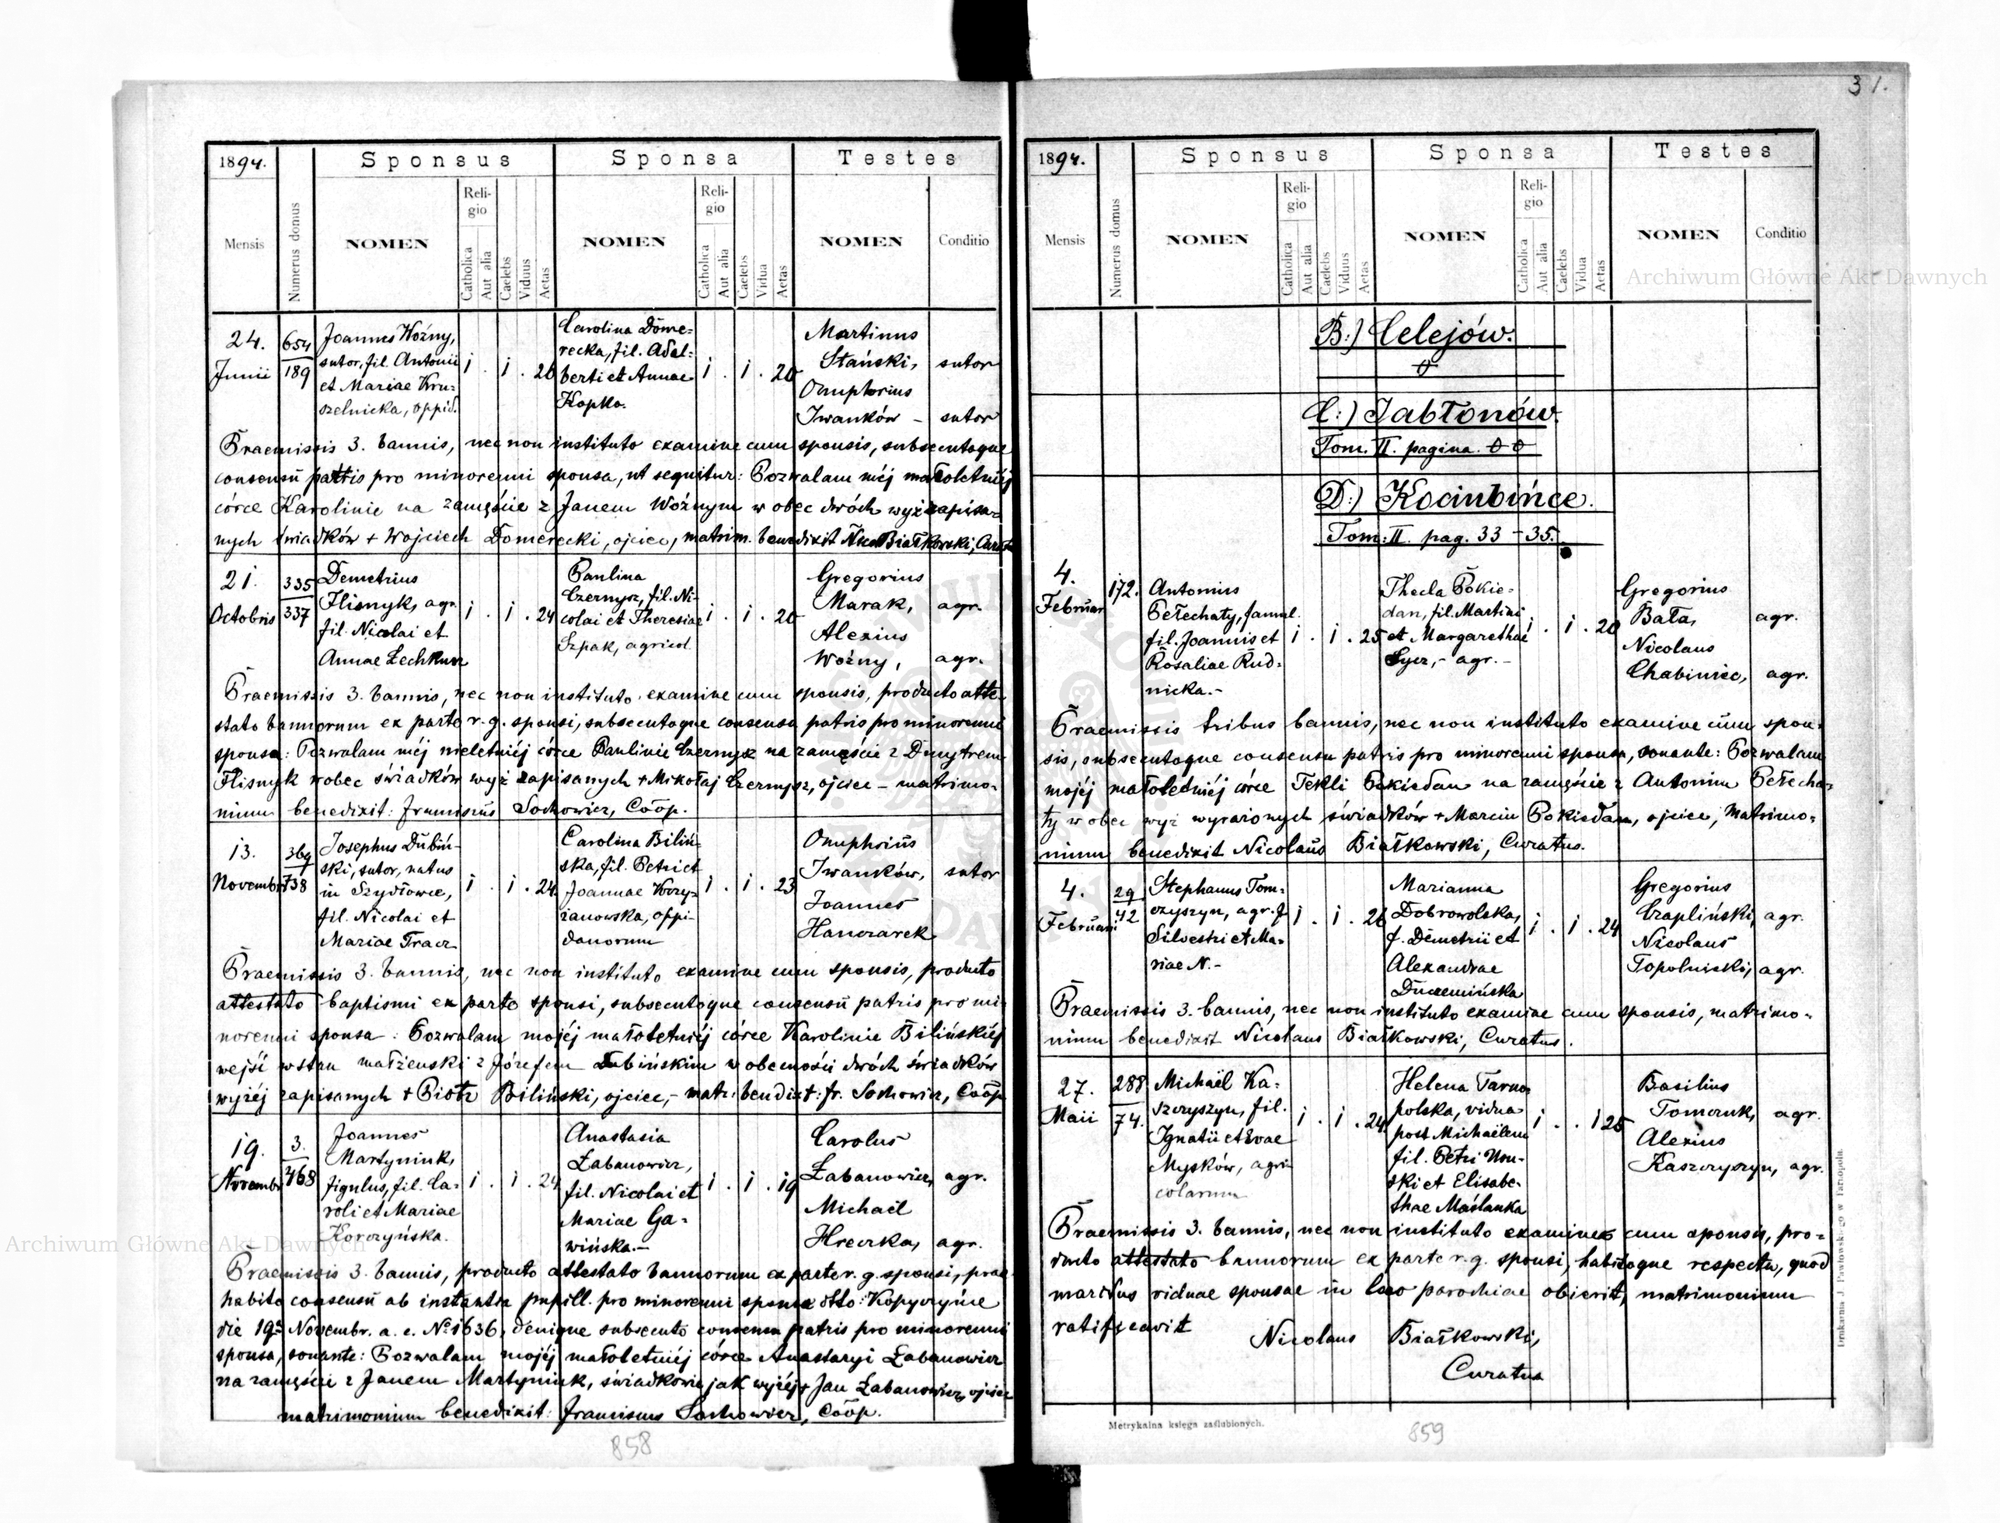 31.
1894.
Sponsus
Sponsa
Testes
Mensis
Numerus domus
NOMEN
Religio
Catholica
Aut alia
Caelebs
Viduus
Aetas
NOMEN
Religio
Catholica
Aut alia
Caelebs
Vidua
Aetas
NOMEN
Conditio
24. Junii
654
189
Joannes Woźny,
sutor, fil. Antonii
et Mariae Kru-
szelnicka, oppid.
1 . 1 . 26
Carolina Dome-
recka, fil. Adal-
berti et Annae
Kopko.
1 . 1 . 20
Martinus
Stański, sutor
Onuphrius
Iwanków – sutor
Praemissis 3. bannis, nec non instituto examine cum sponsis, subsecutoque
consensu patris pro minorenni sponsa, ut sequitur: Pozwalam méj małoletniéj
córce Karolinie na zamęście z Janem Woźnym w obec dwóch wyż zapisa-
nych świadków + Wojciech Domerecki, ojciec, matrim. benedixit Nico Białkowski, Curat
21. Octobris
335
337
Demetrius
Flisnyk, agr.
fil. Nicolai et
Annae Lechkun
1 . 1 . 24
Paulina
Czernysz, fil. Ni-
colai et Theresiae
Szpak, agricol
1 . 1 . 20
Gregorius
Marak, agr.
Alexius
Woźny, agr.
Praemissis 3. bannis, nec non instituto examine cum sponsis, producto atte-
stato bannorum ex parte r. g. sponsi, subsecutoque consensu patris pro minorenni
sponsa: Pozwalam méj nieletniéj córce Paulinie Czernysz na zamęście z Dmytrem
Flisnyk wobec świadków wyż zapisanych + Mikołaj Czernysz, ojciec – matrimo-
nium benedixit: Franciscus Sochowicz, Coop.
13. Novembr
369
738
Josephus Dubiń-
ski, sutor, natus
in Szydłowce,
fil. Nicolai et
Mariae Tracz
1 . 1 . 24
Carolina Biliń-
ska, fil. Petri et
Joannae Krzy-
żanowska, oppi-
danorum
1 . 1 . 23
Onuphrius
Iwanków, sutor
Joannes
Hanczarek
Praemissis 3. bannis, nec non instituto examine cum sponsis, producto
attestato baptismi ex parte sponsi, subsecutoque consensu patris pro mi
norenni sponsa: Pozwalam mojéj małoletniéj córce Karolinie Bilińskiéj
wejść w stan małżenski z Józefem Dubińskim w obecności dwóch świadków
wyżéj zapisanych + Piotr Biliński, ojciec, – matr. bendixt: fr. Sochowicz, Coop
19. Novembr
3.
468
Joannes
Martyniuk,
figulus, fil. Ca-
roli et Mariae
Korczyńska.
1 . 1 . 24
Anastasia
Łabanowicz,
fil. Nicolai et
Mariae Ga-
wińska.–
1 . 1 . 19
Carolus
Łabanowicz, agr.
Michaël
Hreczka, agr.
Praemissis 3. bannis, producto attestato bannorum ex parte r. g. sponsi, prae-
habito consensu ab instantia pupill. pro minorenni sponsa dtto: Kopyczyńce
die 19. Novembr. a. c. No 1636, denique subsecuto consensu patris pro minorenni
sponsa, sonante: Pozwalam mojéj małoletniéj córce Anastazyi Łabanowicz
na zamęście z Janem Martyniuk, świadkowie jak wyżéj + Jan Łabanowicz, ojciec
matrimonium benedixit: Franciscus Sochowicz, Coop.
858
1894.
Sponsus
Sponsa
Testes
Mensis
Numerus domus
NOMEN
Religio
Catholica
Aut alia
Caelebs
Viduus
Aetas
NOMEN
Religio
Catholica
Aut alia
Caelebs
Vidua
Aetas
NOMEN
Conditio
B.) Celejów.
C.) Jabłonów.
Tom. II. pagina. 0 0
D.) Kociubińce.
Tom: II. pag. 33 – 35.
4. Februar
172.
Antonius
Pełechaty, famul.
fil. Joannis et
Rosaliae Rud-
nicka.–
1 . 1 . 25
Thecla Pokie-
dan, fil. Martini
et Margarethae
Sycz, – agr. –
1 . 1 . 20
Gregorius
Bała, agr.
Nicolaus
Chabiniec, agr.
Praemissis tribus bannis, nec non instituto examine cum spon-
sis, subsecutoque consensu patris pro minorenni sponsa, sonante: Pozwalam
mojéj małoletniéj córce Tekli Pokiedan na zamęście z Antonim Pełecha-
ty w obec wyż wyrażonych świadków + Marcin Pokiedan, ojciec, Matrimo-
nium benedixit Nicolaus Białkowski, Curatus.
4. Februari
29
12
Stephanus Tom-
czyszyn, agr. f.
Silvestri et Ma-
riae N.–
1 . 1 . 26
Marianna
Dobrowolska,
f. Demetrii et
Alexandrae
Duczemińska
1 . 1 . 24
Gregorius
Czapliński, agr.
Nicolaus
Topolnicki, agr.
Praemissis 3. bannis, nec non instituto examine cum sponsis, matrimo-
nium benedixit Nicolaus Białkowski, Curatus.
27. Maii
288
74.
Michaël Ka-
szczyszyn, fil.
Ignatii et Evae
Mysków, agri-
colarum
1 . 1 . 24
Helena Tarno-
polska, vidua
post Michaëlem
fil. Petri Non-
ski et Elisabe-
thae Maślanka
1 . . 1 25
Basilius
Tomczuk, agr.
Alexius
Kaszczyszyn, agr.
Praemissis 3. bannis, nec non instituto examine cum sponsis, pro-
ducto attestato bannorum ex parte r. g. sponsi, habitoque respectu, quod
maritus viduae sponsae in loco parochiae obierit, matrimonium
ratificavit Nicolaus Białkowski,
Curatus
Metrykalna księga zaślubionych.
Drukarnia J. Pawłowskiego w Tarnopolu.
859
Archiwum Główne Akt Dawnych
Archiwum Główne Akt Dawnych